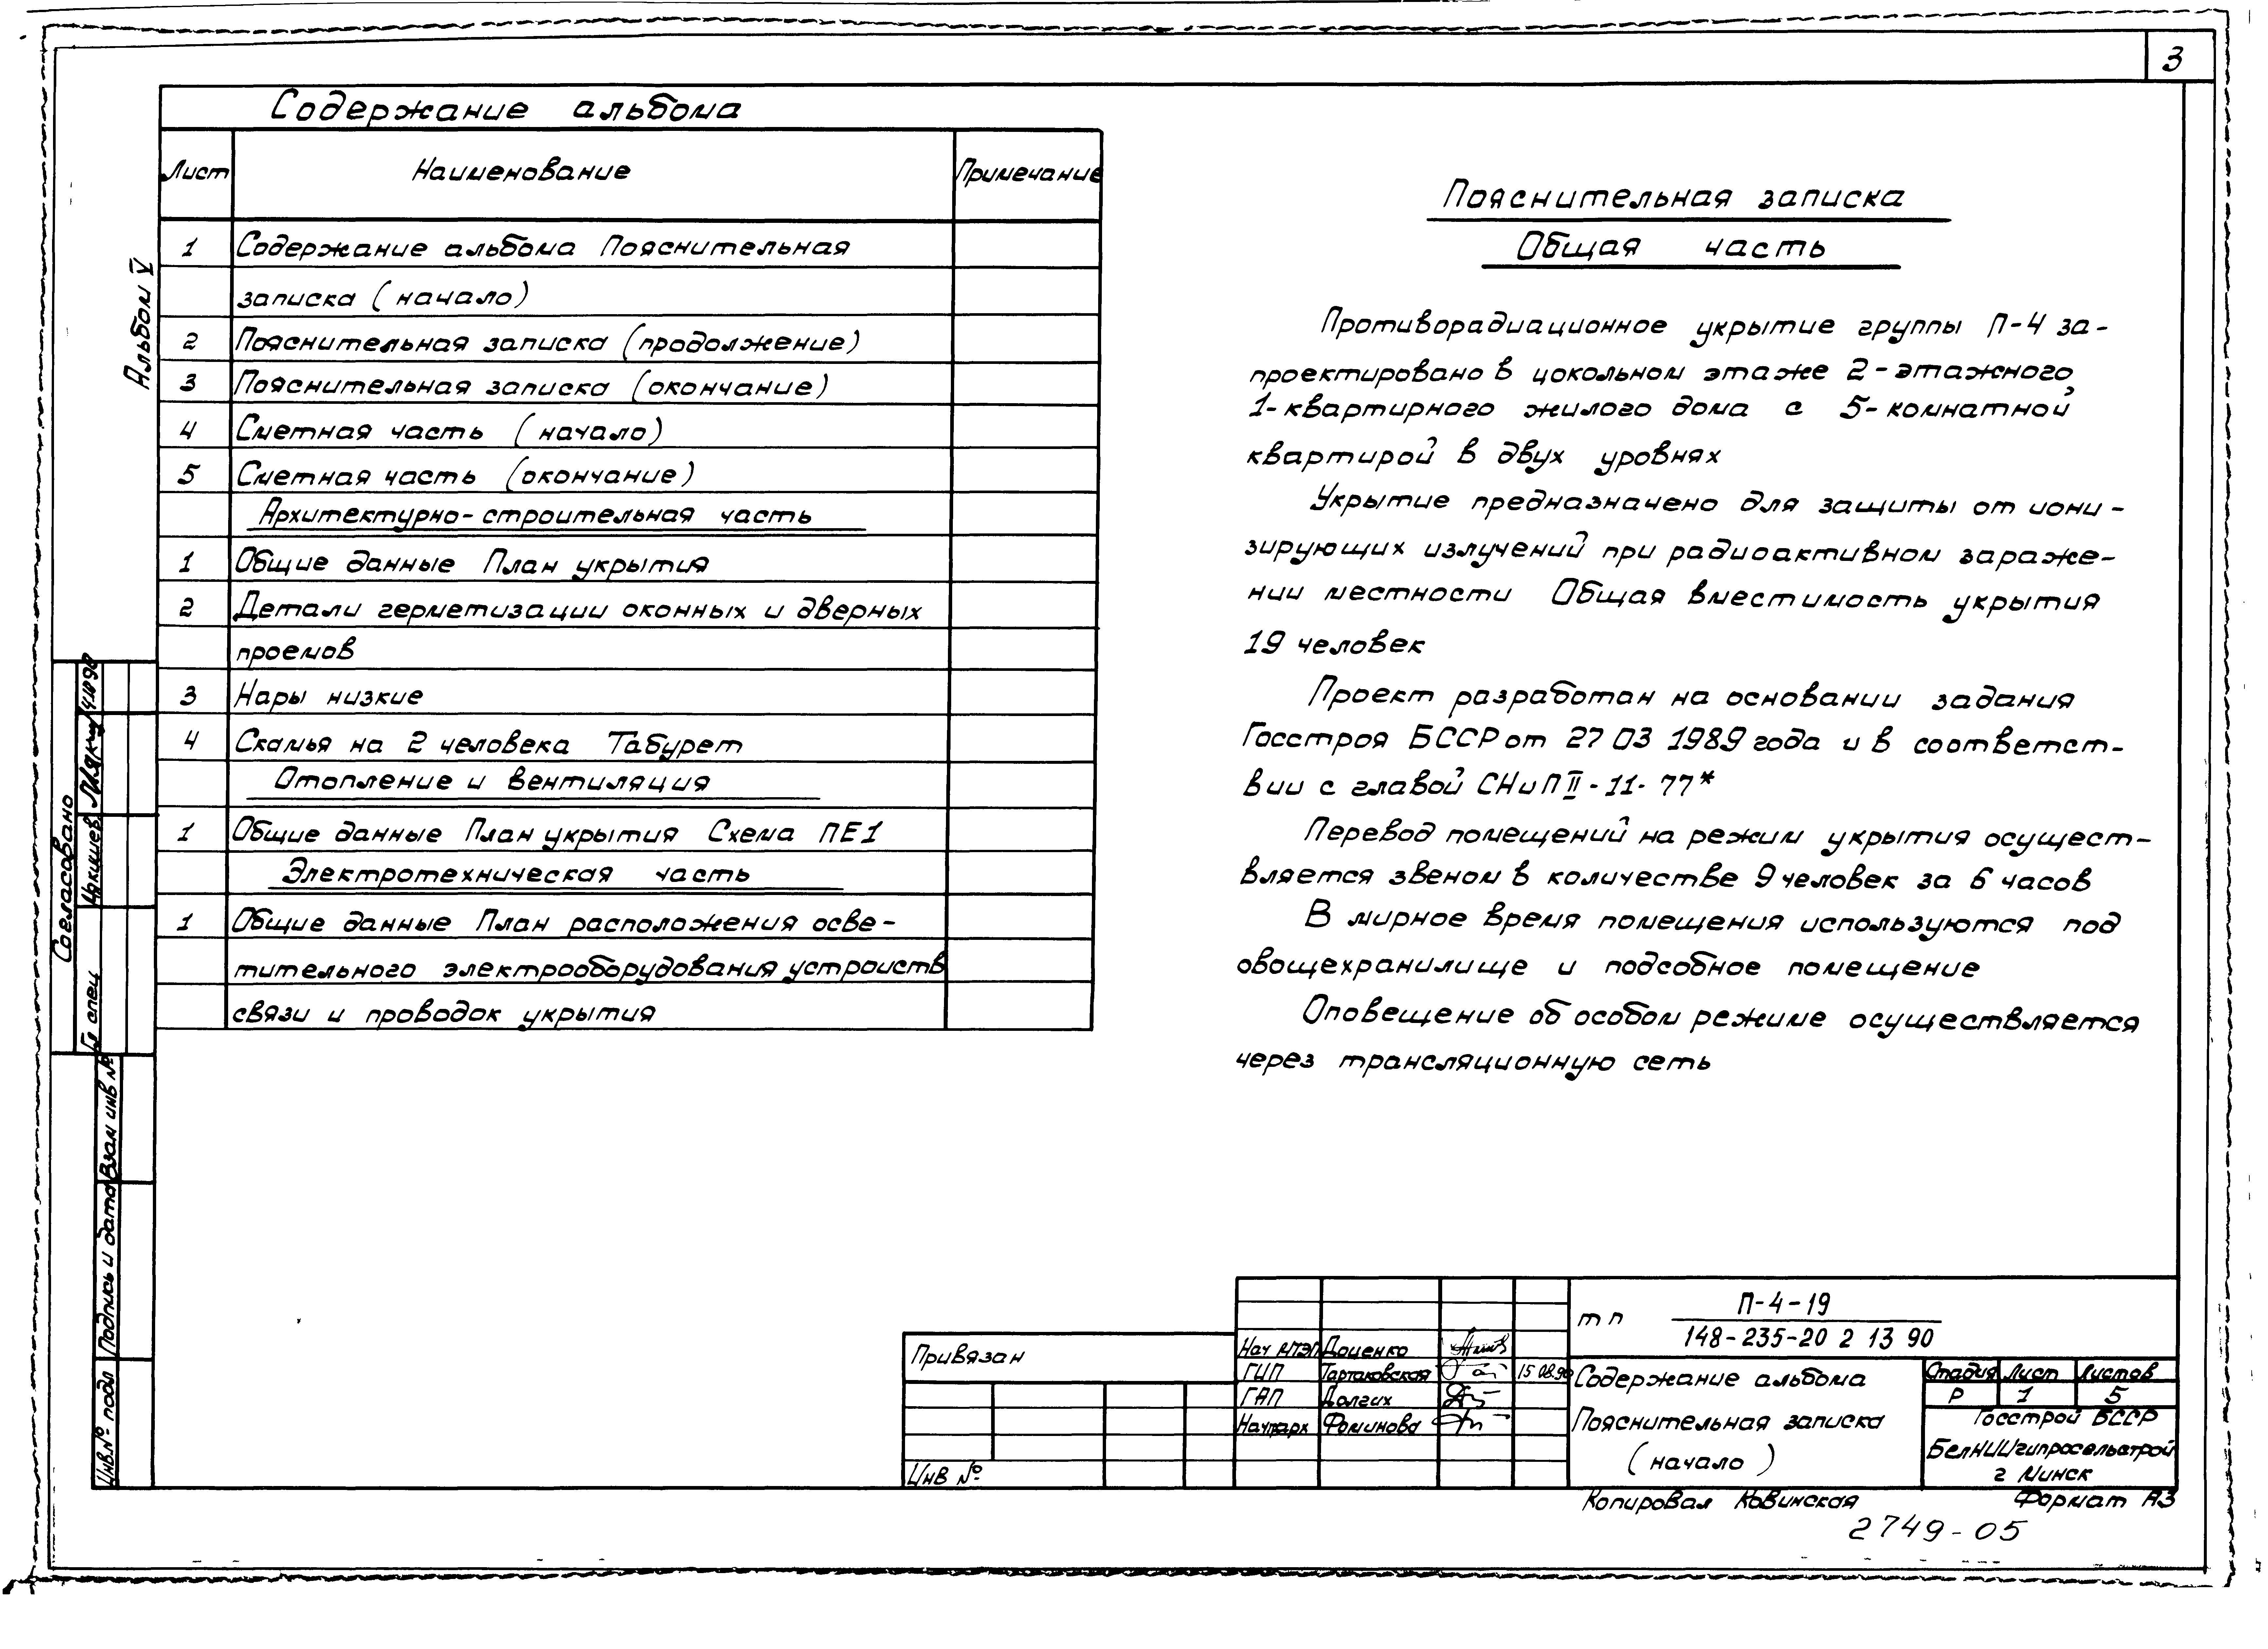 3
Содержание альбома
Лист Наименование Примечание
1 Содержание альбома Пояснительная
записка (начало)
2 Пояснительная записка (продолжение)
3 Пояснительная записка (окончание)
4 Сметная часть (начало)
5 Сметная часть (окончание)
Архитектурно-строительная часть
1 Общие данные План укрытия
2 Детали герметизации оконных и дверных
проемов
3 Нары низкие
4 Скамья на 2 человека Табурет
Отопление и вентиляция
1 Общие данные План укрытия Схема ПЕ1
Электротехническая часть
1 Общие данные План расположения осве-
тительного электрооборудования устроиств
связи и проводок укрытия
Пояснительная записка
Общая часть
Противорадиационное укрытие группы П-4 за-
проектировано в цокольном этаже 2-этажного,
1-квартирного жилого дома с 5-комнатной
квартирой в двух уровнях
Укрытие предназначено для защиты от иони-
зирующих излучений при радиоактивном зараже-
нии местности Общая вместимость укрытия
19 человек
Проект разработан на основании задания
Госстроя БССР от 27 03 1989 года и в соответст-
вии с главой СНиП II-11-77*
Перевод помещений на режим укрытия осущест-
вляется звеном в количестве 9 человек за 6 часов
В мирное время помещения используются под
овощехранилище и подсобное помещение
Оповещение об особом режиме осуществляется
через трансляционную сеть
Альбом V
Согласовано
Гл спец
Взам инв №
Подпись и дата
Инв.№ подл
Привязан
Инв №
Доценко
ГИП Тартаковская 15 08.90
ГАП Долгих
Фоминова
т п П-4-19
148-235-20 2 13 90
Содержание альбома
Пояснительная записка
(начало)
Стадия Лист Листов
Р 1 5
Госстрой БССР
БелНИИгипросельстрой
г Минск
Копировал Ковинская Формат А3
2749-05